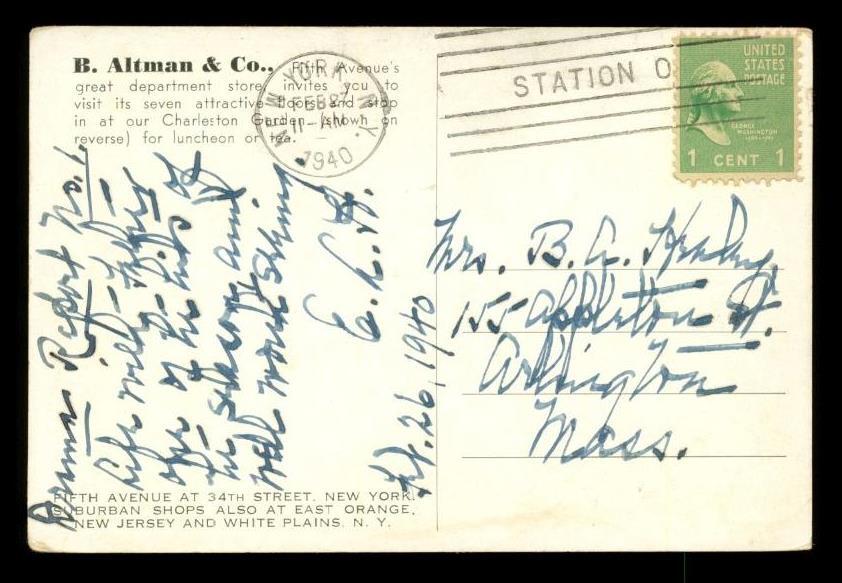 B. Altman & Co., Fifth Avenue's
great department store, invites you to
visit its seven attractive floors and stop
in at our Charleston Garden (shown on
reverse) for luncheon or tea.
NEW YORK, N.Y.
FEB 27
11-AM
1940
STATION O
UNITED
STATES
POSTAGE
GEORGE
WASHINGTON
1 CENT 1
Drama Report No. 1.
Life with Father
one of the hits of
the season and
well worth seeing.
E. L. H.
Feb. 26, 1940
Mrs. B. A.
155 Appleton St.
Arlington
Mass.
FIFTH AVENUE AT 34TH STREET, NEW YORK.
SUBURBAN SHOPS ALSO AT EAST ORANGE,
NEW JERSEY AND WHITE PLAINS, N. Y.